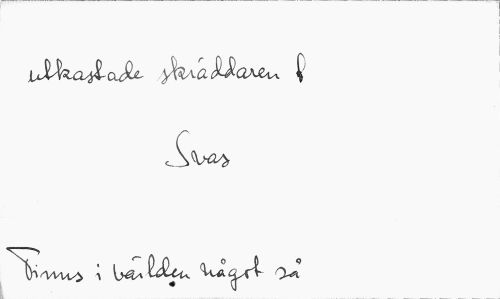 utkastade skräddaren
Svas
Finns i världen något så